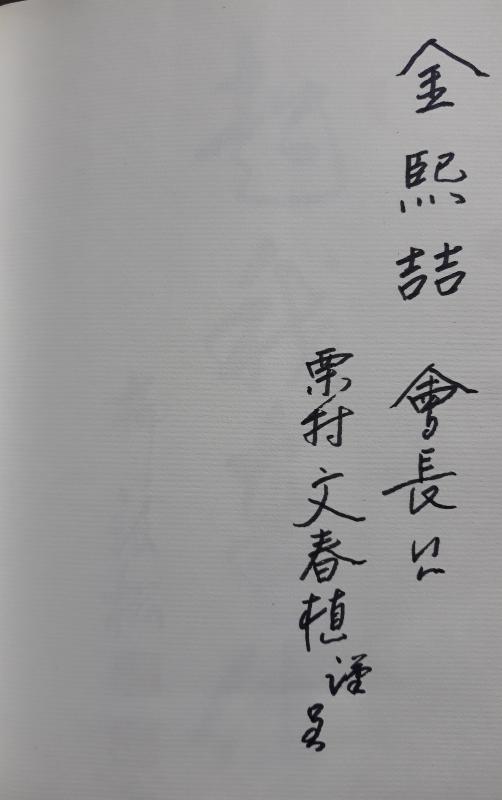 金熙喆 會長 公
栗村 文春植 謹呈